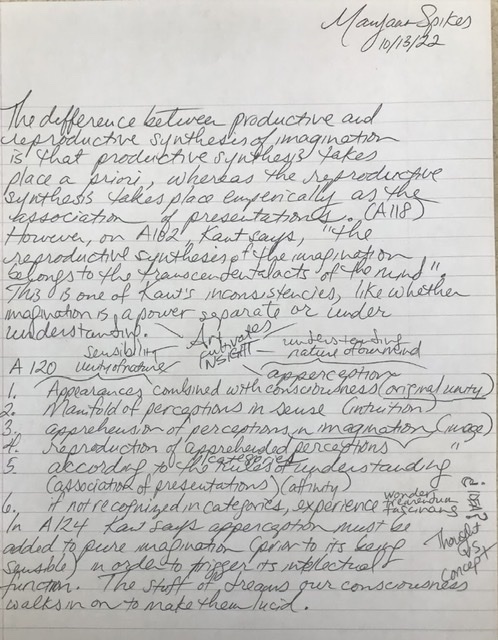 Maryann Spikes
10/13/22
The difference between productive and
reproductive synthesis of imagination
is that productive synthesis takes
place a priori, whereas the reproductive
synthesis takes place emperically as the
association of presentations. (A118)
However, on A102, Kant says, "the
reproductive synthesis of the imagination
belongs to the transcendental acts of the mind".
This is one of Kant's inconsistencies, like whether
imagination is a power separate or under
understanding.
Art
cultivates
INSIGHT
sensibility
unity of nature
understanding
nature of our mind
A 120
apperception
1. Appearances combined with consciousness (original unity)
2. Manifold of perceptions in sense (intuition)
3. apprehension of perceptions, in imagination (image)
4. reproduction of apprehended perceptions "
5. according to the rules of understanding
categories
(association of presentations) (affinity)
6. if not recognized in categories, experience
wonder
tremendum
fascinans
In A124 Kant says apperception must be
added to pure imagination (prior to its being
sensible) in order to trigger its intellectual
function. The stuff of dreams our consciousness
walks in on to make them lucid.
Thought
vs
concept